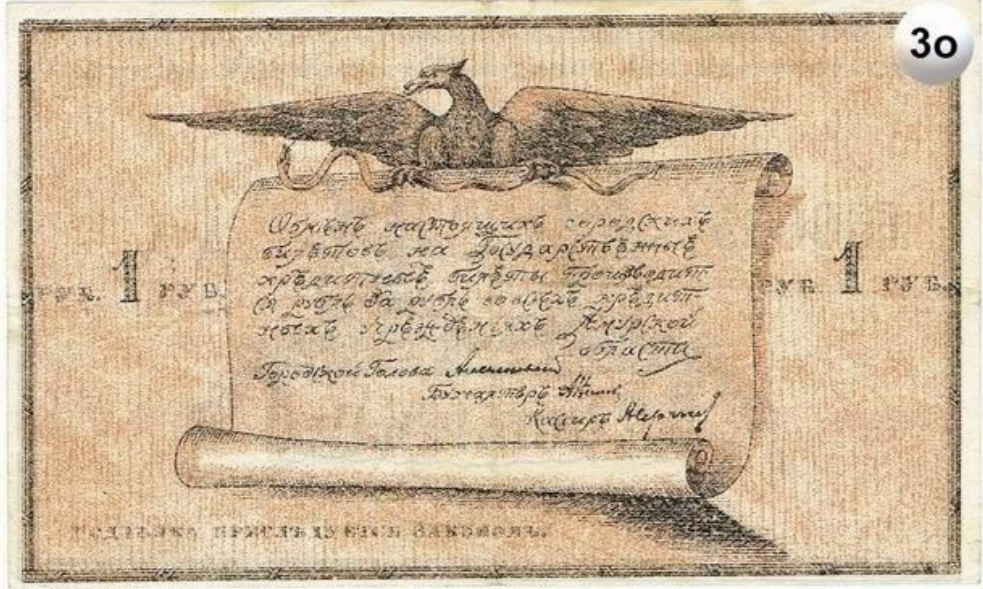 3о
Обмѣнъ настоящихъ городскихъ
билѣтовъ на Государственные
кредитные билѣты производит
ся рубль за рубль во всѣхъ кредит-
ныхъ учрежденіяхъ Амурской
области
Городской Голова
Бухгалтеръ
Кассиръ
РУБ. 1 РУБ.
РУБ. 1 РУБ.
ПОДДѢЛКА ПРЕСЛѢДУЕТСЯ ЗАКОНОМЪ.